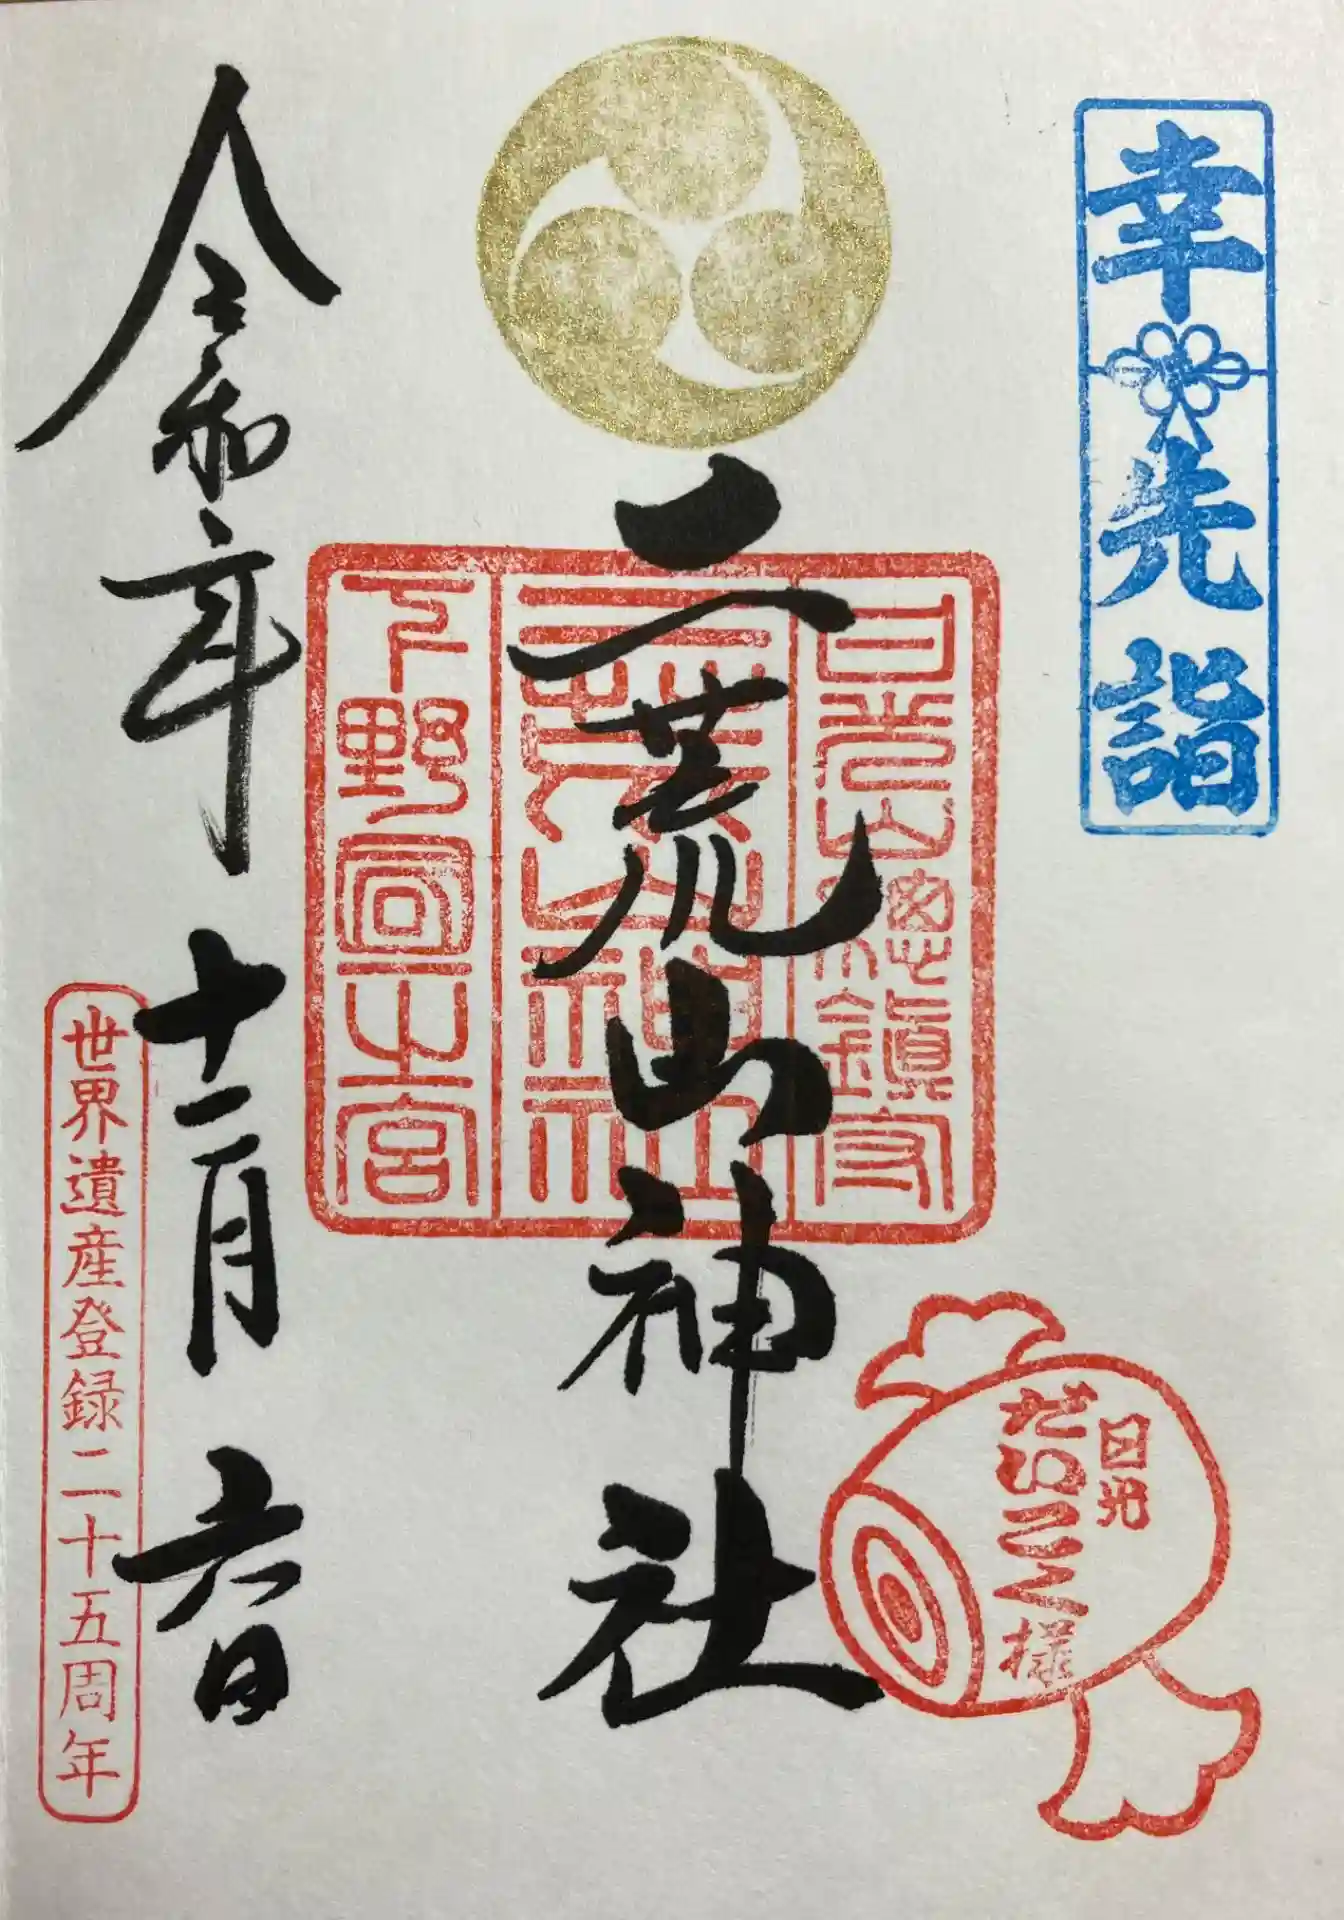 幸先詣
日光山總鎮守
二荒山神社
下野國一之宮
二荒山神社
日光
だいこく様
令和六年十二月六日
世界遺産登録二十五周年